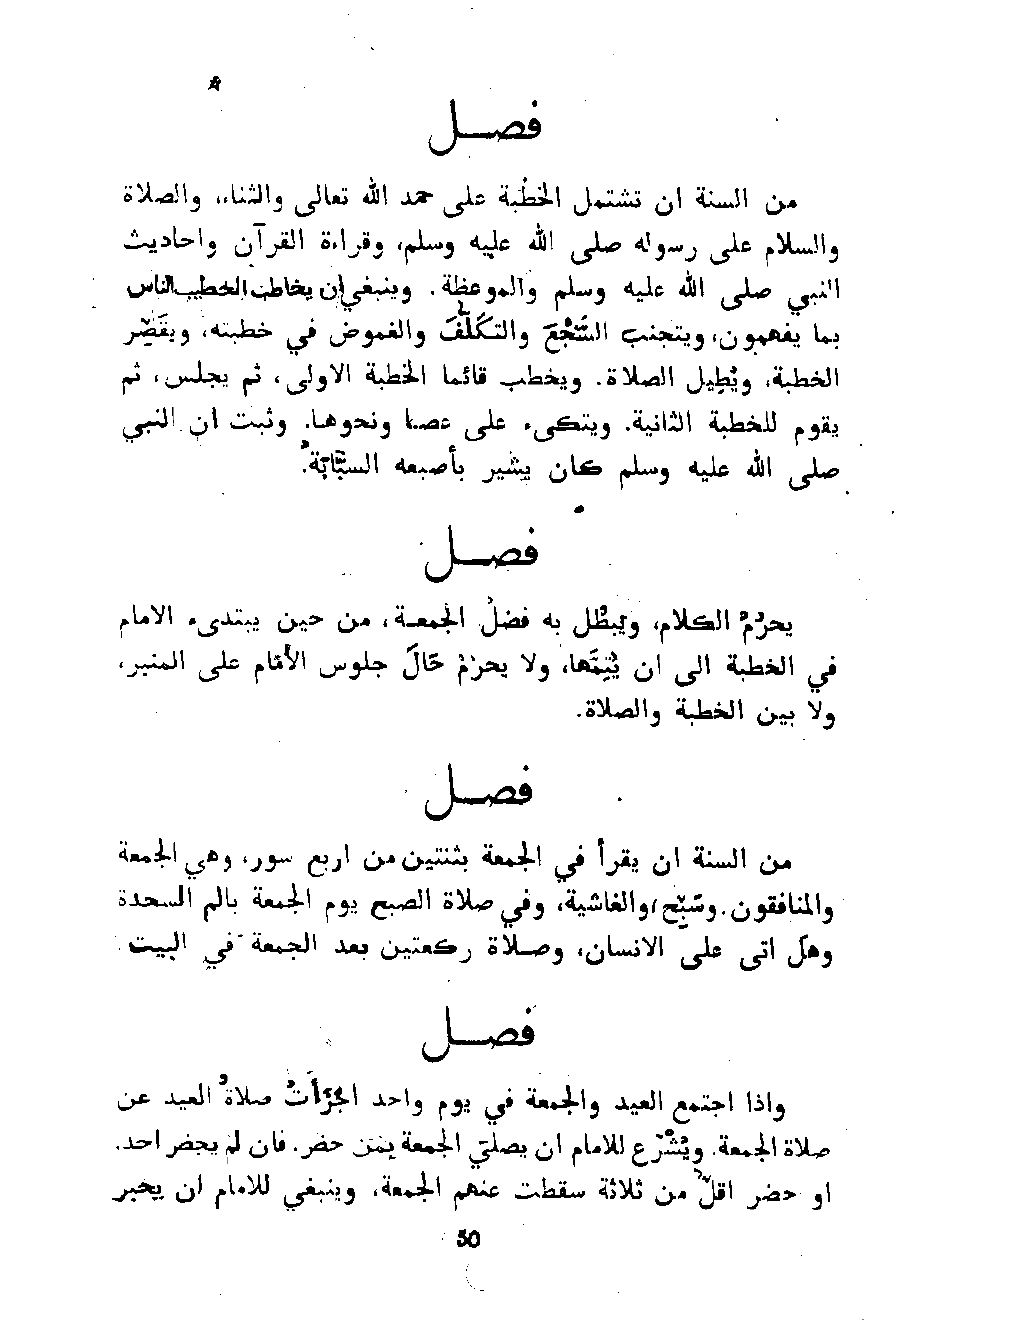 فصـــل
من السنة ان تشتمل الخطبة على حمد الله تعالى والثناء، والصلاة
والسلام على رسوله صلى الله عليه وسلم، وقراءة القرآن واحاديث
النبي صلى الله عليه وسلم والموعظة. وينبغي ان يخاطب الخطيب الناس
بما يفهمون، ويتجنب السَّجْعَ والتكَلُّفَ والغموض في خطبته، ويقَصِّر
الخطبة، ويُطِيل الصلاة. ويخطب قائما الخطبة الاولى، ثم يجلس، ثم
يقوم للخطبة الثانية. ويتكىء على عصا ونحوها. وثبت ان النبي
صلى الله عليه وسلم كان يشير بأصبعه السبَّابَةُ.
فصـــل
يحرُمُ الكلام، ويَبطُل به فضلُ الجمعة، من حين يبتدىء الامام
في الخطبة الى ان يُتِمَّها، ولا يحرُمُ حَالَ جلوس الأمام على المنبر،
ولا بين الخطبة والصلاة.
فصـــل
من السنة ان يقرأ في الجمعة بثنتين من اربع سور، وهي الجمعة
والمنافقون. وسَبِّح، والغاشية، وفي صلاة الصبح يوم الجمعة بالم السجدة
وهل اتى على الانسان، وصلاة ركعتين بعد الجمعة في البيت
فصـــل
واذا اجتمع العيد والجمعة في يوم واحد اجْزَأتْ صلاةُ العيد عن
صلاة الجمعة. ويُشْرَع للامام ان يصلي الجمعة بمن حضر. فان لم يحضر احد.
او حضر اقلُّ من ثلاثة سقطت عنهم الجمعة، وينبغي للامام ان يخبر
50